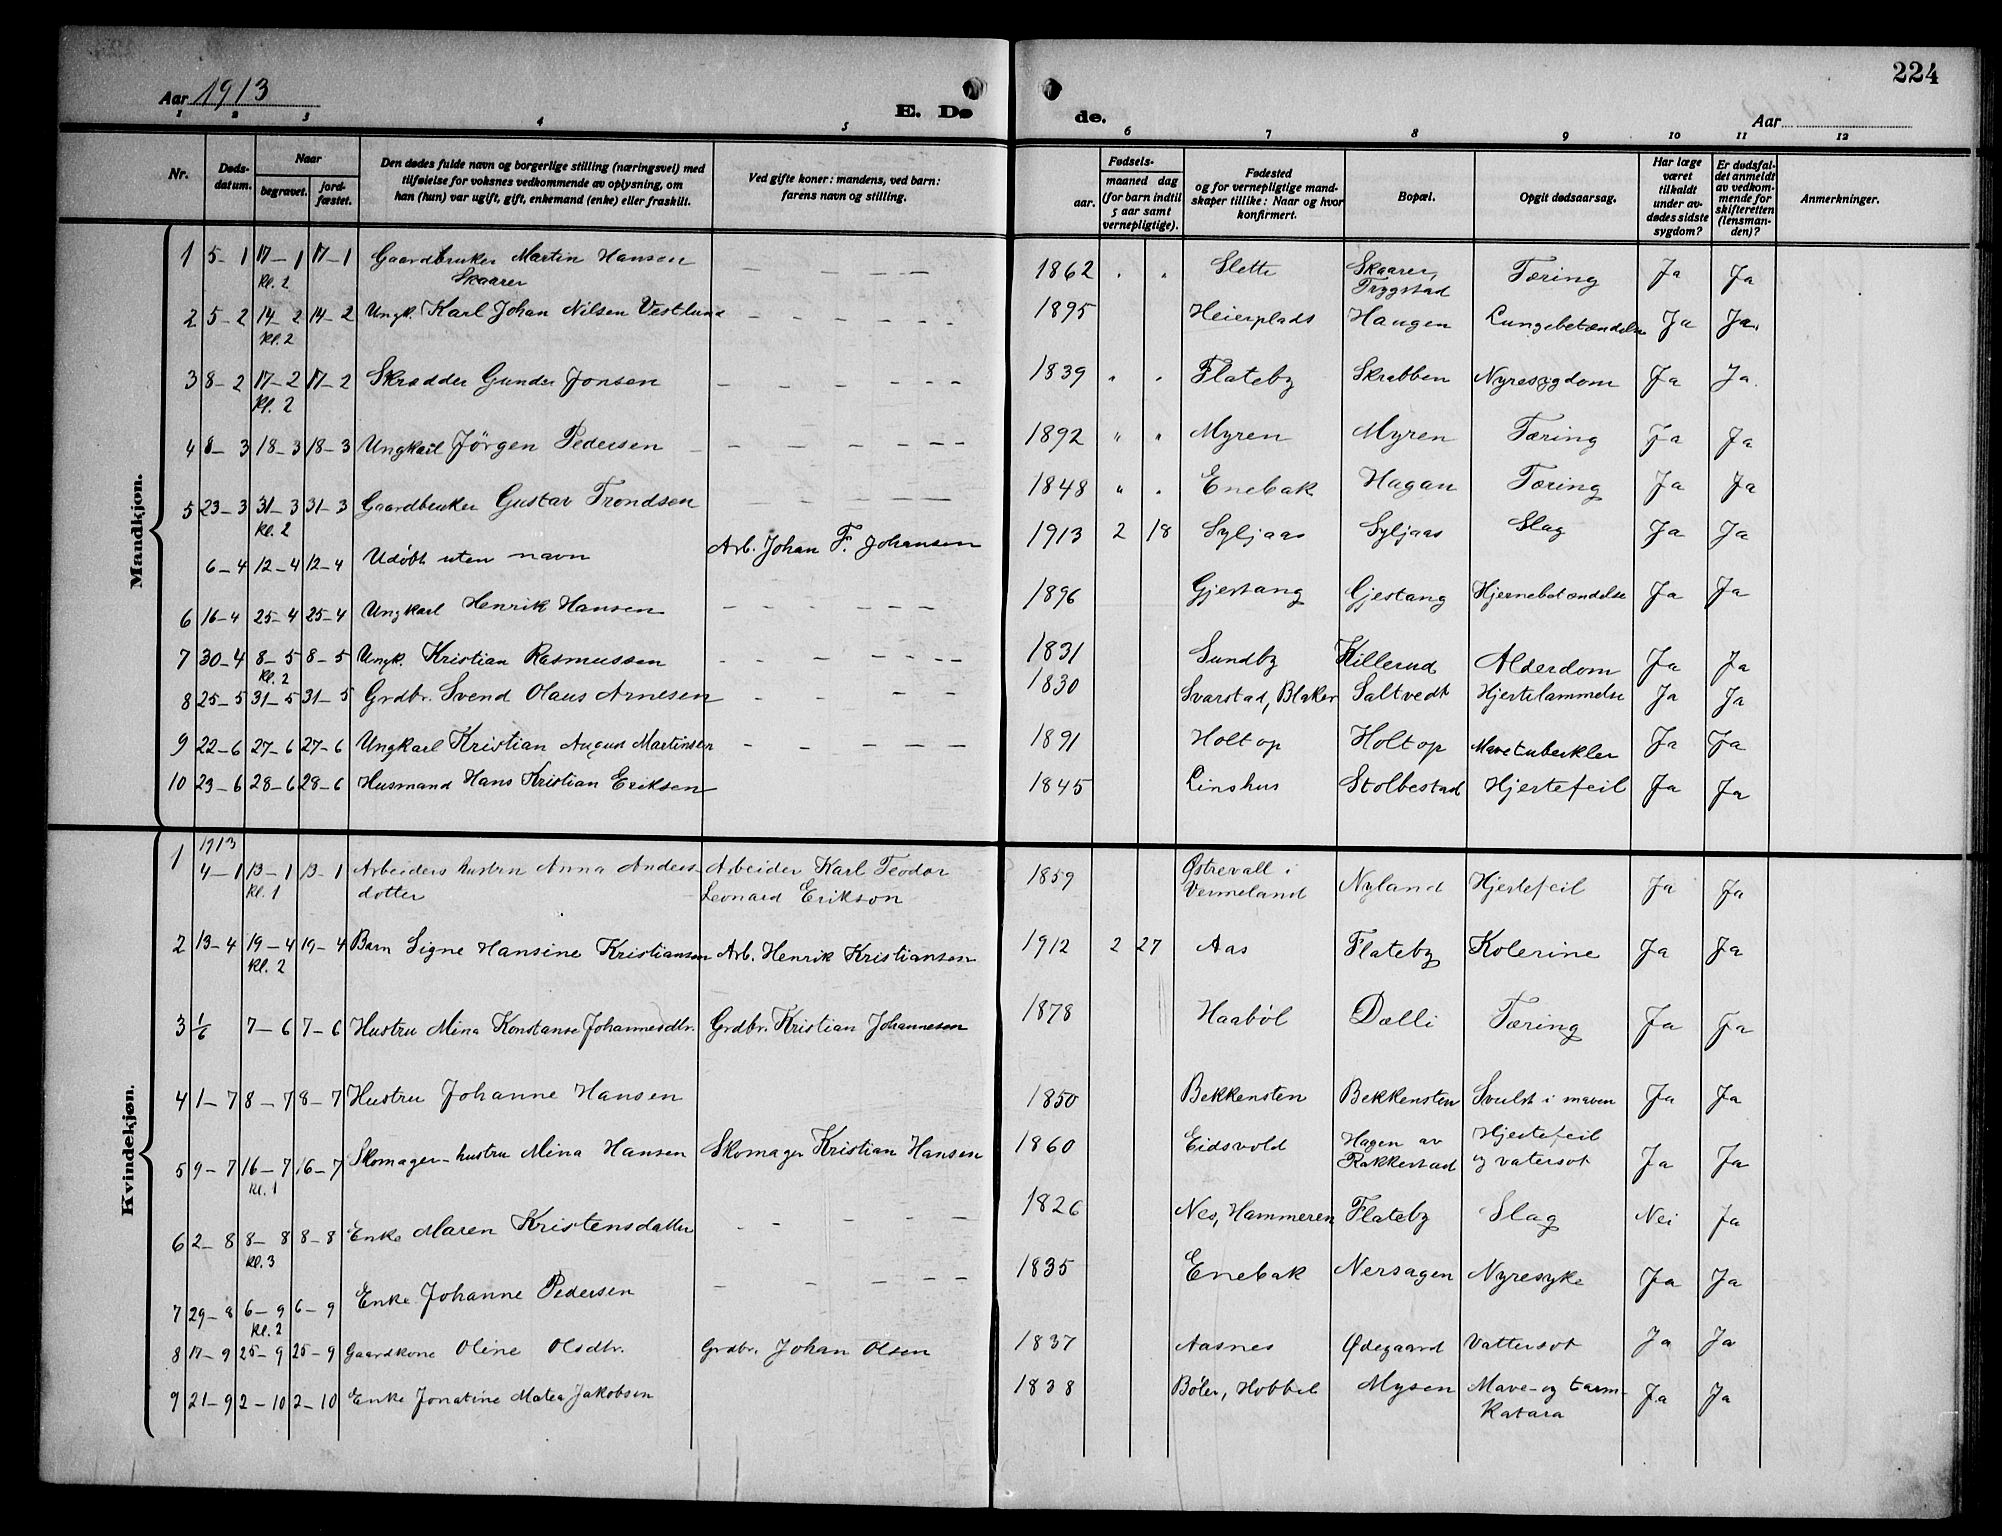 224
Aar 1913
E. Dø de.
Aar
1 2 3 4 5 6 7 8 9 10 11 12
Nr.
Døds-
datum.
Naar
begravet.
jord-
fæstet.
Den dødes fulde navn og borgerlige stilling (næringsvei) med
tilføielse for voksnes vedkommende av oplysning, om
han (hun) var ugift, gift, enkemand (enke) eller fraskilt.
Ved gifte koner: mandens, ved barn:
farens navn og stilling.
Fødsels-
aar.
maaned dag
(for barn indtil
5 aar samt
vernepligtige).
Fødested
og for vernepligtige mand-
skaper tillike: Naar og hvor
konfirmert.
Bopæl.
Opgit dødsaarsag.
Har læge
været
tilkaldt
under av-
dødes sidste
sygdom?
Er dødsfal-
det anmeldt
av vedkom-
mende for
skifteretten
(lensman-
den)?
Anmerkninger.
Mandkjøn.
1 5-1 17-1 17-1 Gaardbruker Martin Hansen — — — — — 1862 " " Slette Skaarer, Tæring Ja Ja
kl. 2 Skaarer Trygstad
2 5-2 14-2 14-2 Ungk. Karl Johan Nilsen Vestlund — — — — — 1895 Heierplads Haugen Lungebetændelse Ja Ja.
kl. 2
3 8-2 17-2 17-2 Skrædder Gunder Jonsen — — — — — 1839 " " Flateby Skrabben Nyresygdom Ja Ja.
kl. 2
4 8-3 18-3 18-3 Ungkarl Jörgen Pedersen — — — — — 1892 " " Myren Myren Tæring Ja Ja
5 23-3 31-3 31-3 Gaardbruker Gustav Trondsen — — — — — 1848 " " Enebak Hagan Tæring Ja Ja
kl. 2
6-4 12-4 12-4 Udöbt uten navn Arb. Johan F. Johansen 1913 2 18 Syljaas Syljaas Slag Ja Ja
6 16-4 25-4 25-4 Ungkarl Henrik Hansen — — — — — 1896 Gjestang Gjestang Hjernebetændelse Ja Ja
7 30-4 8-5 8-5 Ungk. Kristian Rasmussen — — — — — 1831 Sundby Killerud Alderdom Ja Ja
kl. 2
8 25-5 31-5 31-5 Grdbr. Svend Olaus Arnesen — — — — — 1830 Svarstad, Blaker Saltvedt Hjertelammelse Ja Ja
9 22-6 27-6 27-6 Ungkarl Kristian August Martinsen — — — — — 1891 Holtop Holtop Mavetuberkler Ja Ja
10 23-6 28-6 28-6 Husmand Hans Kristian Eriksen 1845 Linshus Stolbestad Hjertefeil Ja Ja
Kvindekjøn.
1913
1 4-1 13-1 13-1 Arbeiders hustru Anna Anders- Arbeider Karl Teodor 1859 Østrevall i Nyland Hjertefeil Ja Ja
kl. 1 dotter Leonard Erikson Vermeland
2 13-4 19-4 19-4 Barn Signe Hansine Kristiansen Arb. Henrik Kristiansen 1912 2 27 Aas Flateby Kolerine Ja Ja
kl. 2
3 1/6 7-6 7-6 Hustru Mina Konstanse Johannesdtr. Grdbr. Kristian Johannesen 1878 Haaböl Dælli Tæring Ja Ja
4 1-7 8-7 8-7 Hustru Johanne Hansen 1850 Bekkensten Bekkensten Svulst i maven Ja Ja
5 9-7 16-7 16-7 Skomager-hustru Mina Hansen Skomager Kristian Hansen 1860 Eidsvold Hagen av Hjertefeil Ja Ja
kl. 1 Rakkestad og vatersot
6 2-8 8-8 8-8 Enke Maren Kristensdatter — — — — — 1826 Nes, Hammeren Flateby Slag Nei Ja
kl. 3
7 29-8 6-9 6-9 Enke Johanne Pedersen — — — — — 1835 Enebak Nersagen Nyresyke Ja Ja
kl. 2
8 17-9 25-9 25-9 Gaardkone Oline Olsdtr. Grdbr. Johan Olsen 1837 Aasnes Ødegaard Vattersot Ja Ja
9 21-9 2-10 2-10 Enke Jonatine Matea Jakobsen 1838 Böler, Hobbel Mysen Mave- og tarm- Ja Ja
katara